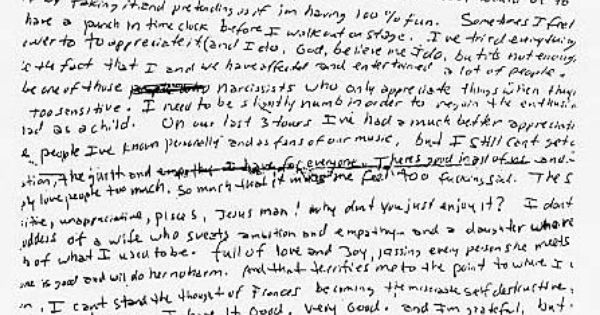 by faking it and pretending as if im having 100% fun. Sometimes I feel
have a punch in time clock before I walk out on stage. I've tried everything
ower to to appreciate it (and I do, God, believe me I do, but its not enough
the fact that I and we have affected and entertained a lot of people.
be one of those narcissists who only appreciate things when they
too sensitive. I need to be slightly numb in order to regain the enthusia
had as a child. On our last 3 tours I've had a much better appreciati
people I've known personally and as fans of our music, but I still cant get
ation, the guilt and empathy I have for everyone. Theres good in all of us and
ply love people too much. So much that it makes me feel too fucking sad. The s
itive, unappreciative, pisces, Jesus man! why dont you just enjoy it? I dont
oddess of a wife who sweats ambition and empathy and a daughter who re
h of what I used to be. full of love and Joy, kissing every person she meets
one is good and will do her no harm. And that terrifies me to the point to where I
n. I cant stand the thought of Frances becoming the miserable self destructive,
I have it Good. very Good. and I'm grateful, but